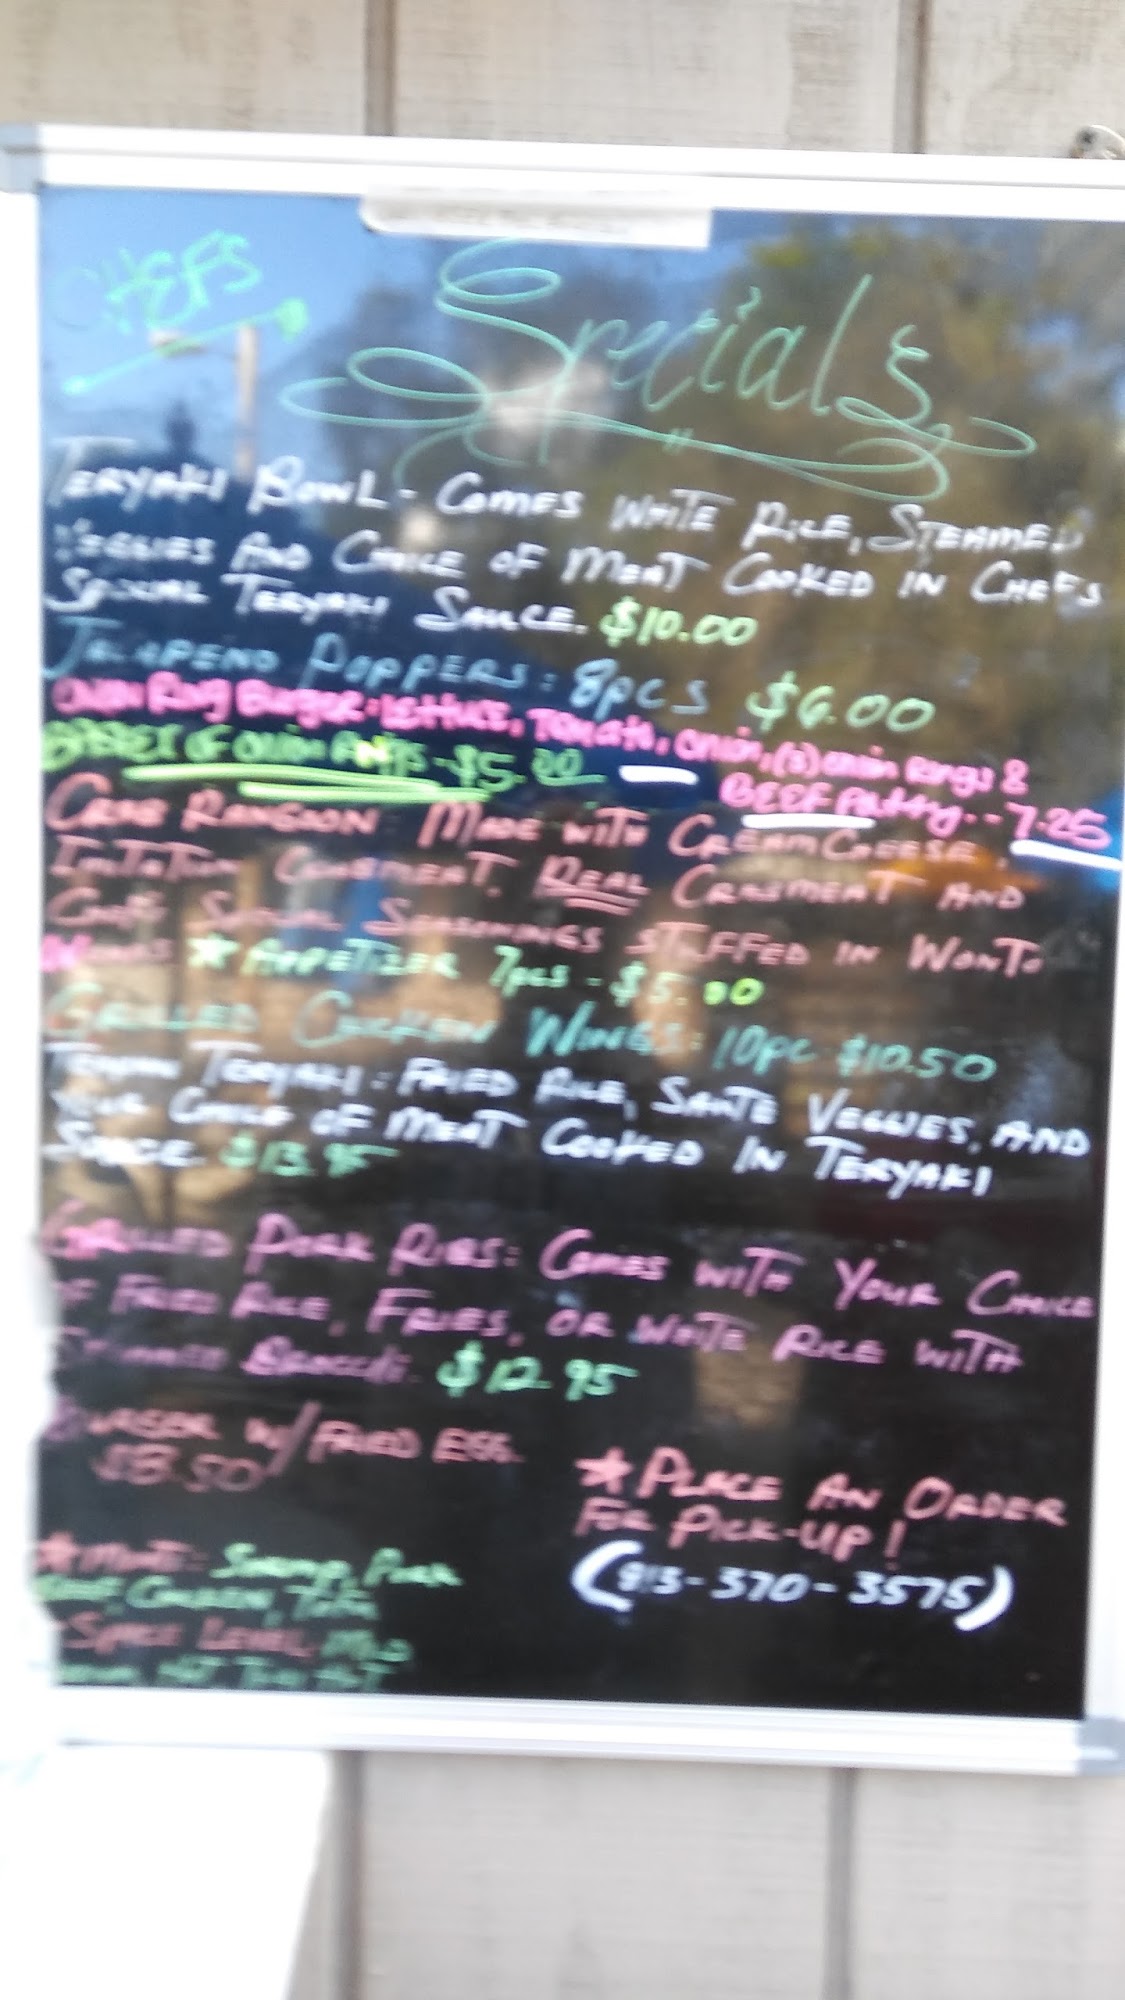 CHEFS
Specials
TERYAKI BOWL - COMES WHITE RICE, STEAMED
VEGGIES AND CHOICE OF MEAT COOKED IN CHEF'S
SPECIAL TERYAKI SAUCE. $10.00
JALAPENO POPPERS: 8pcs $6.00
ONION Ring Burger: Lettuce, Tomato, onion, (3) onion Rings &
BEEF Patty.. 7.25
OF Onion Rings - $5.00
CRAB RANGOON: MADE WITH CREAMCHEESE,
IMITATION CRABMEAT, REAL CRABMEAT AND
CHEF'S SPECIAL SEASONINGS STUFFED IN WONTO
★ APPETIZER 7pcs - $5.00
GRILLED CHICKEN WINGS: 10pc $10.50
TERYAKI: FRIED RICE, SAUTE VEGGIES, AND
YOUR CHOICE OF MEAT COOKED IN TERYAKI
SAUCE $13.95
GRILLED PORK RIBS: COMES WITH YOUR CHOICE
OF FRIED RICE, FRIES, OR WHITE RICE WITH
STEAMED BROCCOLI. $12.95
BURGER W/FRIED EGG
$8.50
★ PLACE AN ORDER
FOR PICK-UP!
(813-370-3575)
★ MEAT: SHRIMP, PORK
BEEF, CHICKEN, TOFU
SPICE LEVEL: MILD